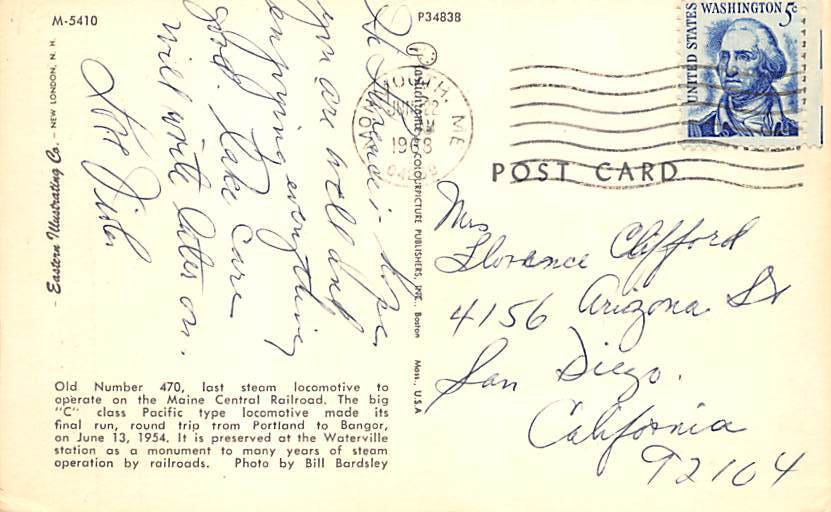 M-5410
P34838
UNITED STATES
WASHINGTON 5c
MONMOUTH, ME
JUN 22
1968
POST CARD
Hi Florence: Hope
you are well and
enjoying everything
good. Take care
will write later on.
Love
Eastern Illustrating Co. — NEW LONDON, N. H.
COLOURPICTURE PUBLISHERS, INC., Boston Mass., U.S.A
Mrs
Florence Clifford
4156 Arizona St
San Diego.
California
92104
Old Number 470, last steam locomotive to
operate on the Maine Central Railroad. The big
"C" class Pacific type locomotive made its
final run, round trip from Portland to Bangor,
on June 13, 1954. It is preserved at the Waterville
station as a monument to many years of steam
operation by railroads. Photo by Bill Bardsley